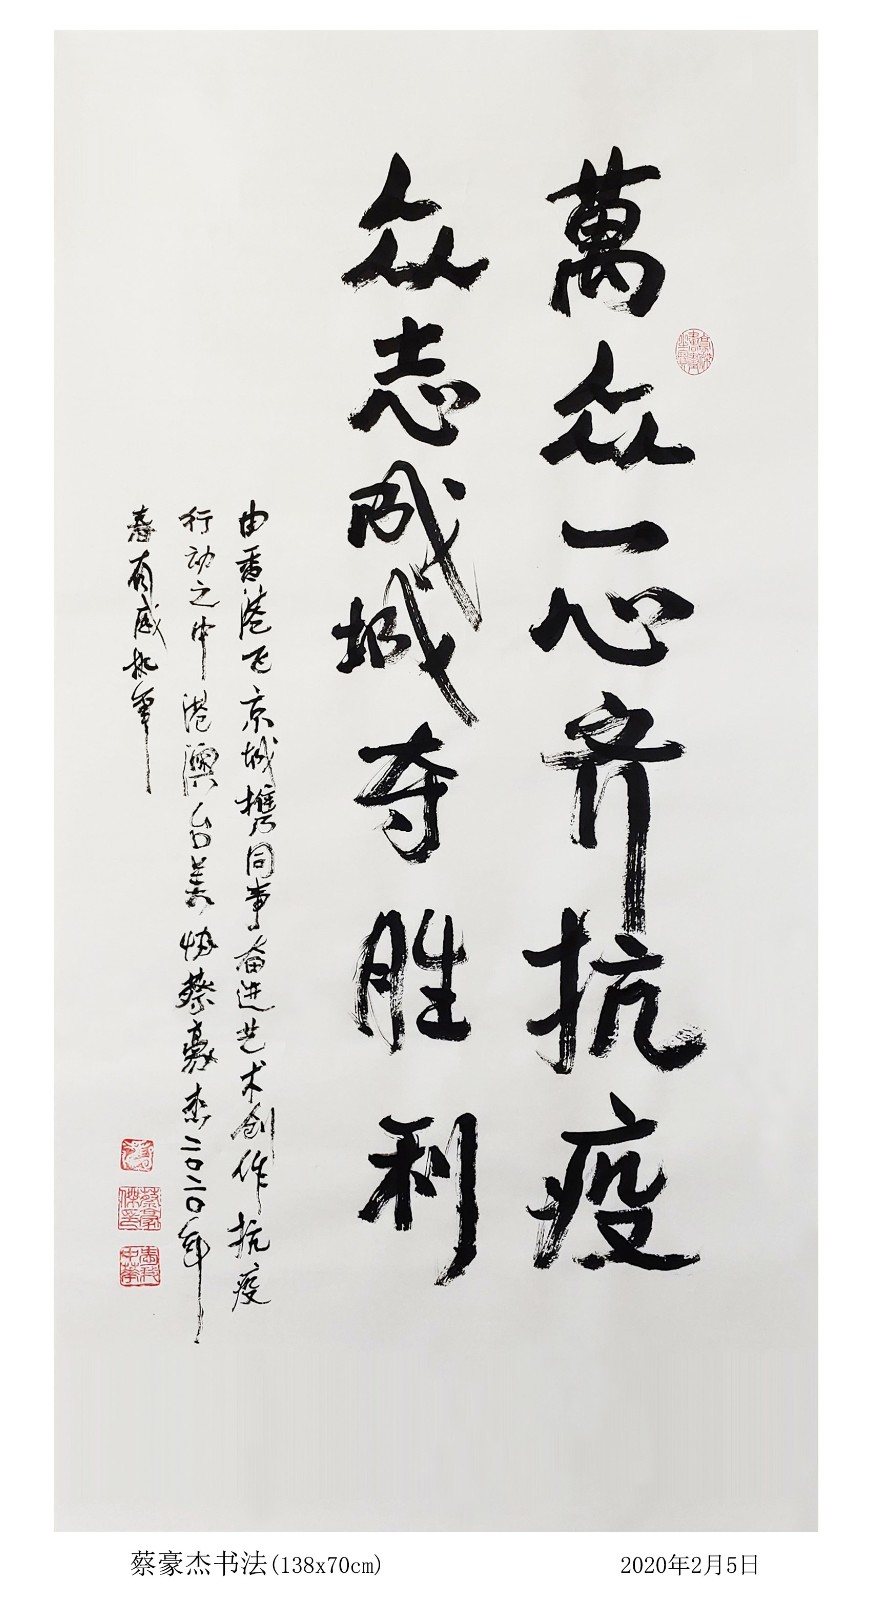 萬众一心齐抗疫
众志成城夺胜利
由香港飞京城携同事奋进艺术创作抗疫
行动之中港澳台美协蔡豪杰二〇二〇年
春有感执笔
蔡豪杰印
蔡豪杰书法(138x70cm)
2020年2月5日